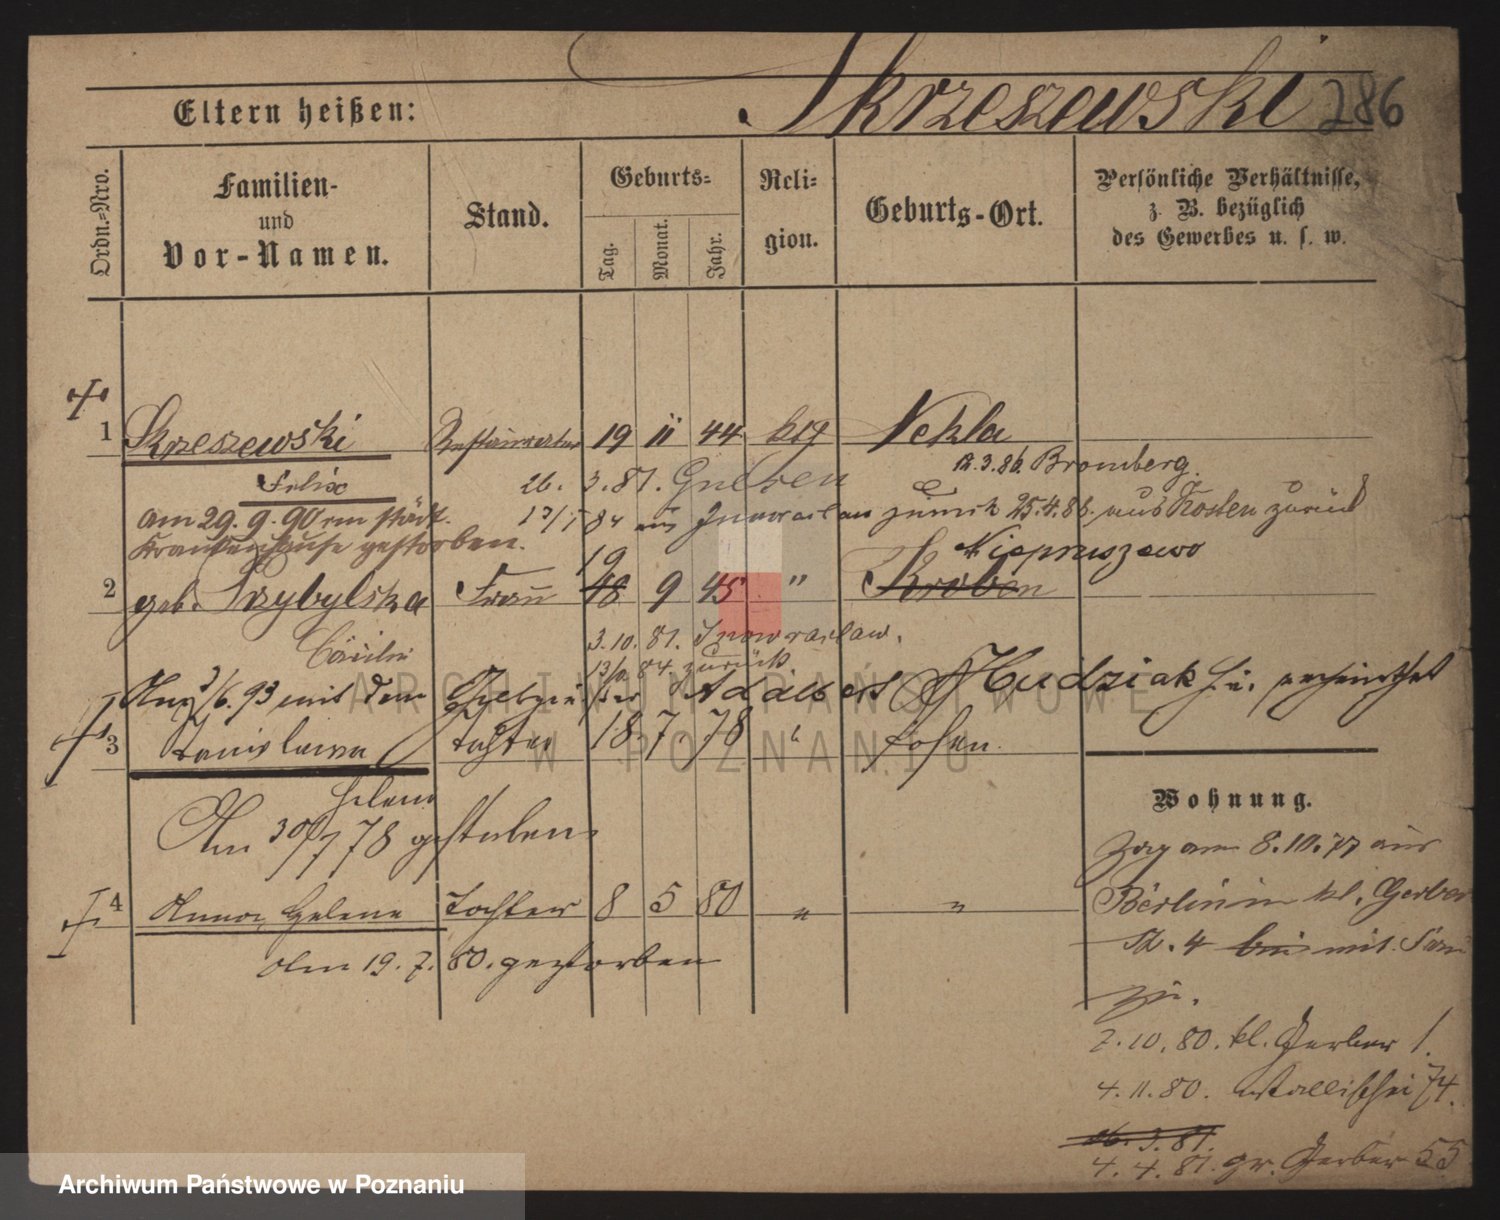 Skrzeszewski 286
Eltern heißen:
Ordn.=Nro.
Familien-
und
Vor-Namen.
Stand.
Geburts=
Tag.
Monat.
Jahr.
Reli=
gion.
Geburts-Ort.
Persönliche Verhältnisse,
z. B. bezüglich
des Gewerbes u. s. w.
1 Skrzeszewski Restaurateur 19 11 44 ktg Nekla
Felix
26. 3. 81. Gnesen
12.3.86. Bromberg.
am 29. 9. 90 im städt.
84 aus Inowraclaw zurück 25.4.86. aus Kosten zurück
Krankenhause gestorben.
19 Niepruszewo
2 geb. Przybylska Frau 18 9 45 " Kroben
Cäcilie
3.10. 81. Inowraclaw.
84. zurück
/6. 93 mit dem Adalbert Hudziak verheirathet
3 Stanislawa Tochter 18 7 78 " Posen.
Helena
Am 30/7 78 gestorben
4 Anna, Helene Tochter 8 5 80 " "
Am 19. 7. 80. gestorben
Wohnung.
Zog am 8.10.77 aus
Berlin in kl. Gerber
Str. 4 bei mit
zu.
2. 10. 80. kl. Gerber 1.
4. 11. 80. Wallischei 74.
26. 3. 81.
4. 4. 81. gr. Gerber 55
ARCHIWUM PAŃSTWOWE
W POZNANIU
Archiwum Państwowe w Poznaniu